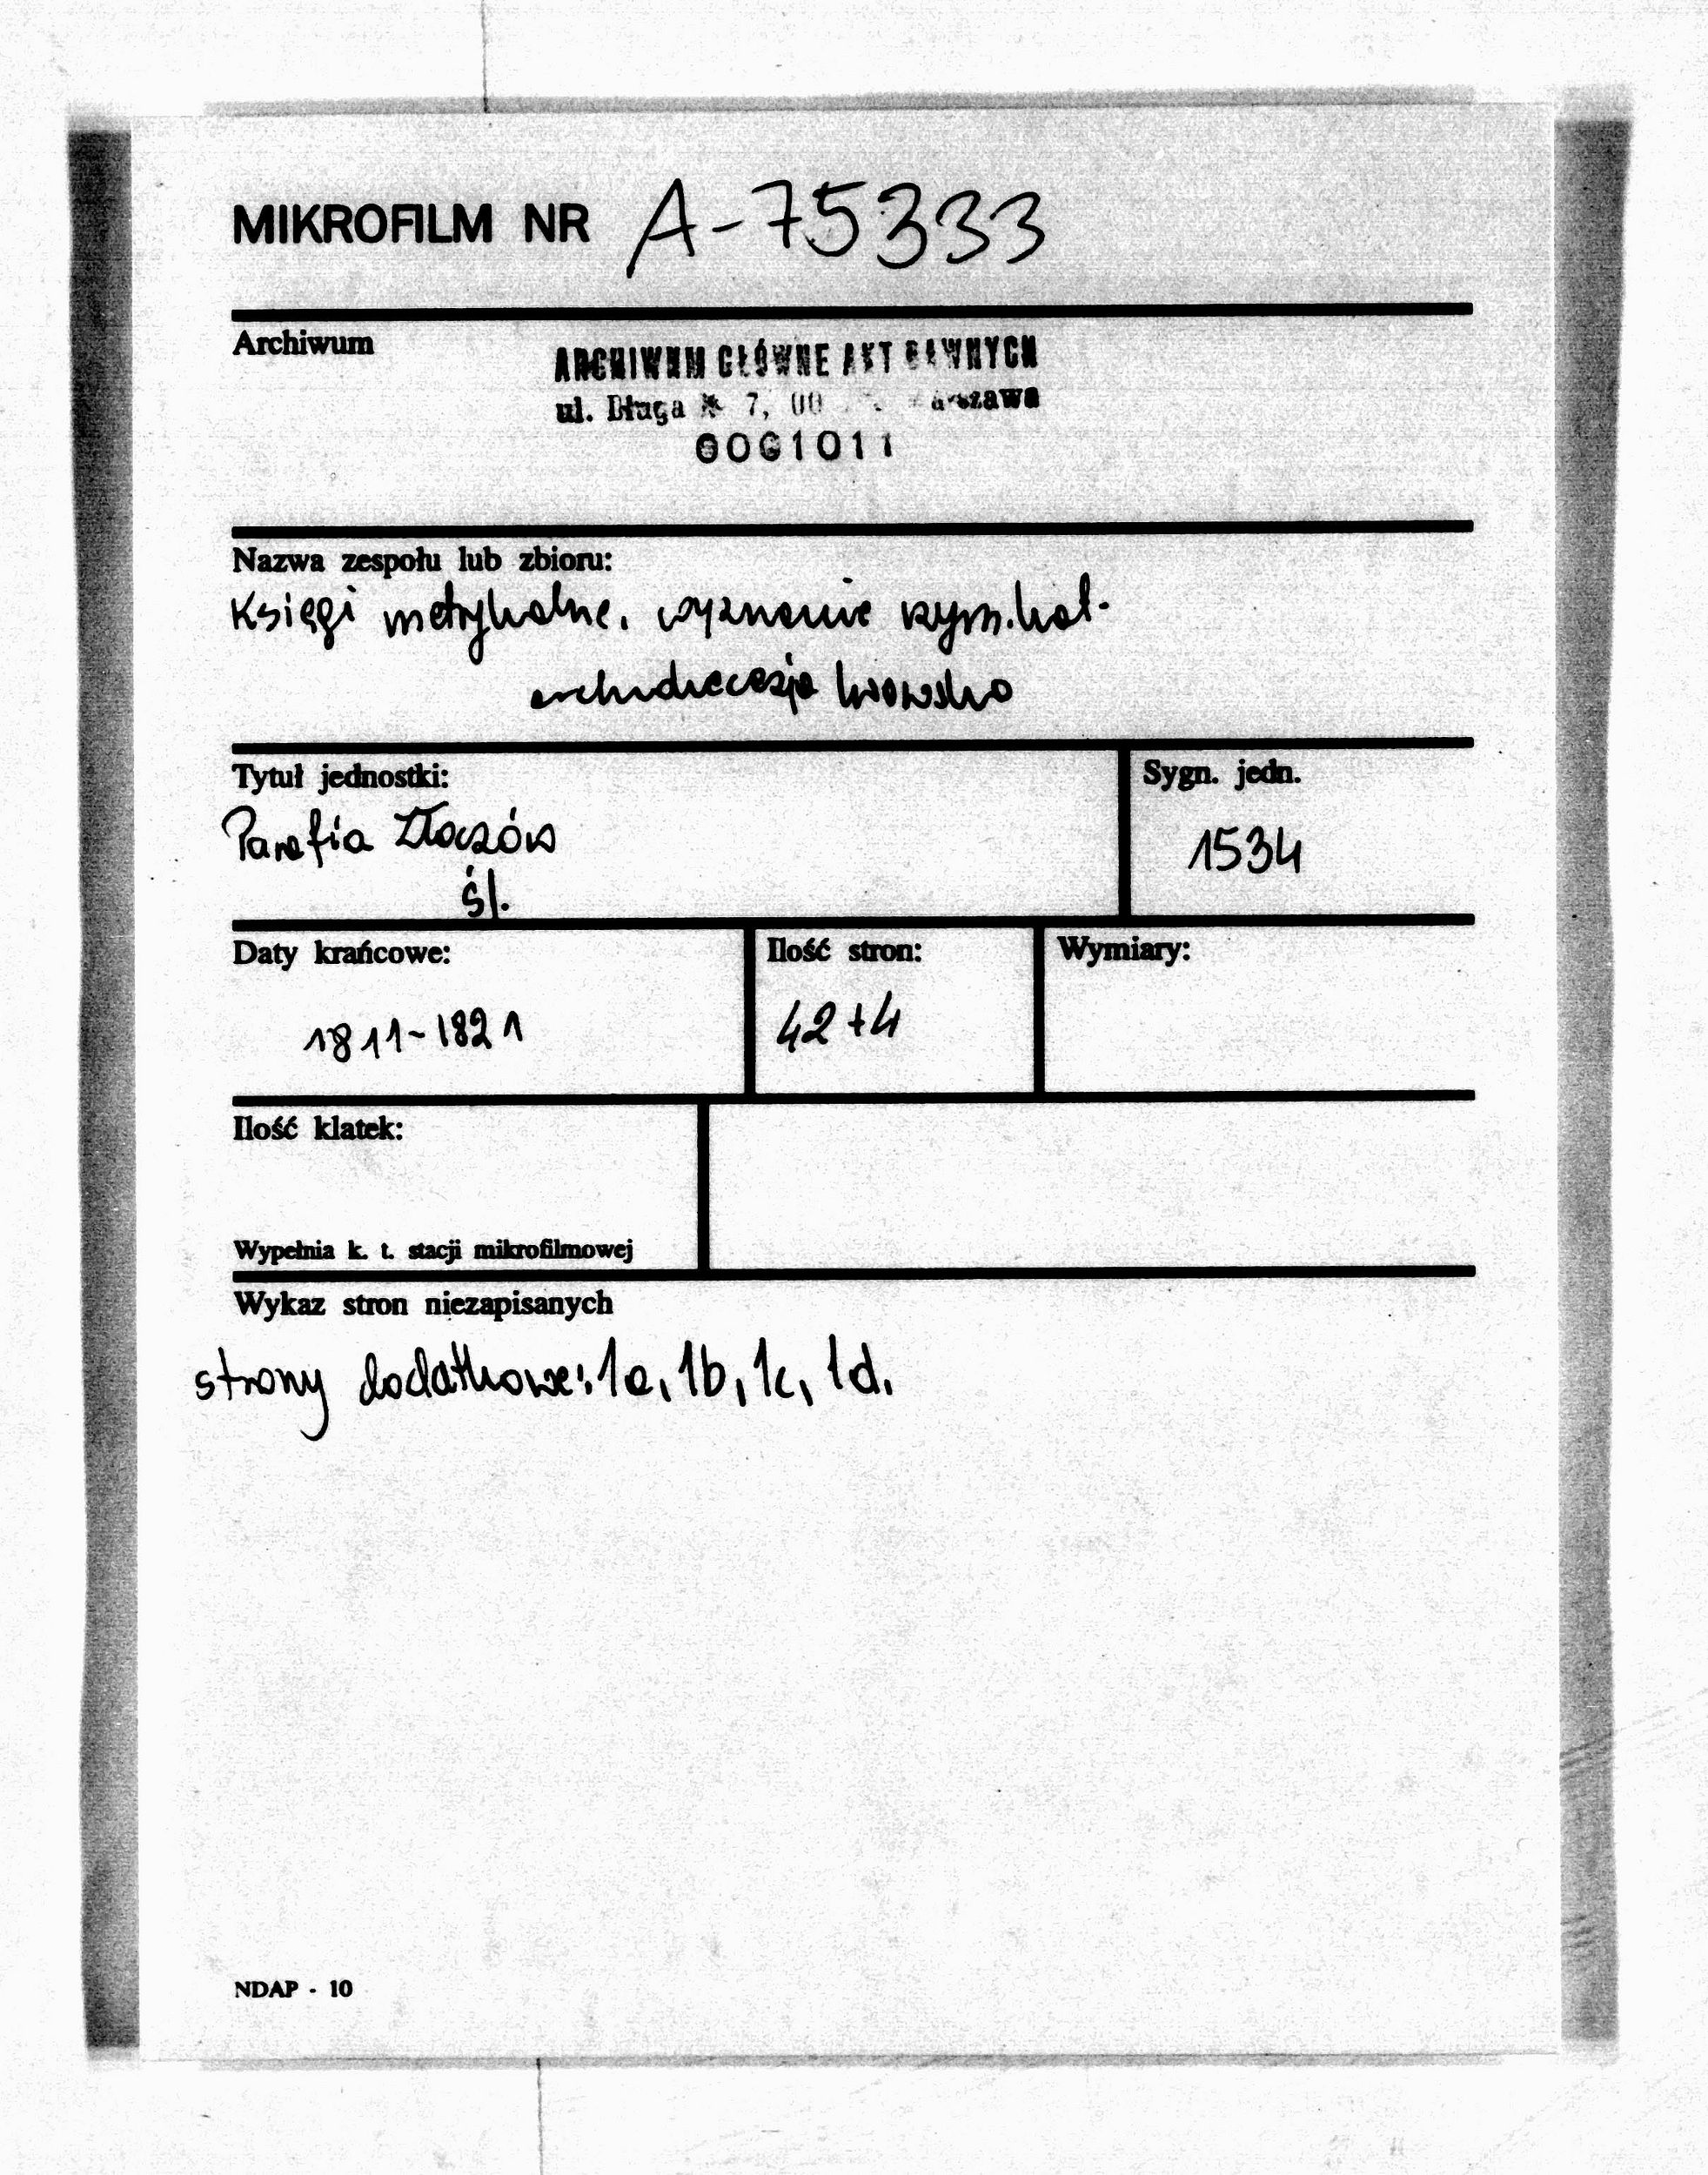 MIKROFILM NR A-75333
Archiwum
ARCHIWUM GŁÓWNE AKT DAWNYCH
ul. Długa 7, 00 Warszawa
0001011
Nazwa zespołu lub zbioru:
Księgi metrykalne, wyznanie rzym.kat.
archidiecezja lwowska
Tytuł jednostki:
Sygn. jedn.
Parafia Złoczów
1534
śl.
Daty krańcowe:
Ilość stron:
Wymiary:
1811-1821
42+4
Ilość klatek:
Wypełnia k. t. stacji mikrofilmowej
Wykaz stron niezapisanych
strony dodatkowe: 1a, 1b, 1c, 1d.
NDAP - 10